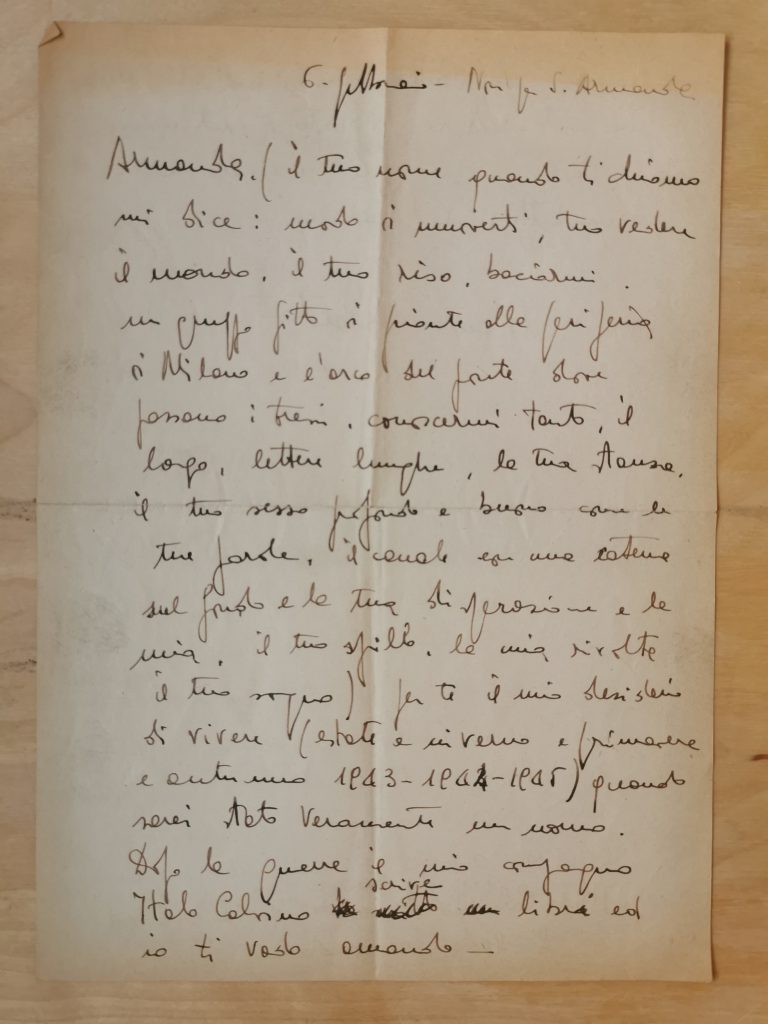 6 - febbraio - Non per S. Armanda
Armanda. (il tuo nome quando ti chiamo
mi dice: modo di muoverti, tuo vedere
il mondo, il tuo riso, baciarmi.
un gruppo fitto di piante alla periferia
di Milano e l'arco del ponte dove
passano i treni, conoscermi tanto, il
lago, lettere lunghe, la tua stanza,
il tuo sesso profondo e buono come le
tue parole, il canale con una catena
sul fondo e la tua disperazione e la
mia, il tuo spillo, la mia rivolta
il tuo sogno) per te il mio desiderio
di vivere (estate e inverno e primavera
e autunno 1943-1944-1945) quando
sarei stato veramente un uomo.
Dopo la guerra il mio compagno
Italo Calvino scrive libri ed
io ti vado amando -